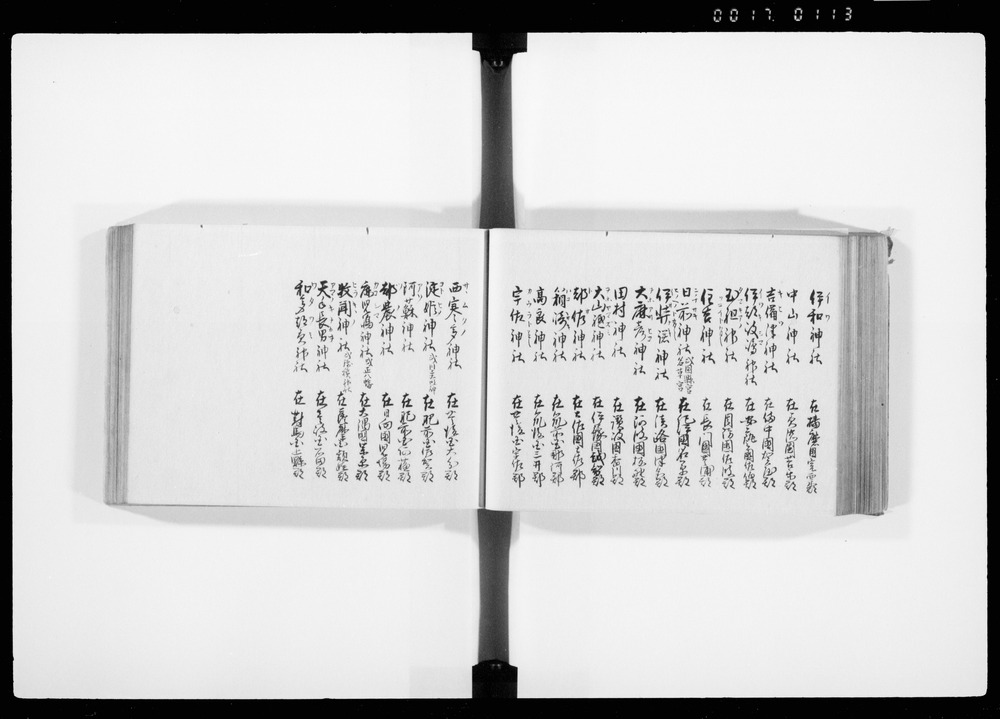 0017 0113
伊和神社 在播磨国宍粟郡
中山神社 在美作国苫東郡
吉備津神社 在備中国賀夜郡
伊都伎嶋神社 在安藝国佐伯郡
玉祖神社 在周防国佐波郡
住吉神社 在長門国豊浦郡
日前神社 在紀伊国名草郡
伊弉諾神社 在淡路国津名郡
大麻彦神社 在阿波国板野郡
田村神社 在讃岐国香川郡
大山祇神社 在伊豫国越智郡
都佐神社 在土佐国土佐郡
筥崎神社 在筑前国那珂郡
高良神社 在筑後国三井郡
宇佐神社 在豊前国宇佐郡
西寒多神社 在豊後国大分郡
淀姫神社 在肥前国佐嘉郡
阿蘇神社 在肥後国阿蘇郡
都農神社 在日向国児湯郡
鹿児嶋神社 在大隅国桑原郡
枚聞神社 在薩摩国頴娃郡
天手長男神社 在壱岐国石田郡
和多都美神社 在對馬国上縣郡